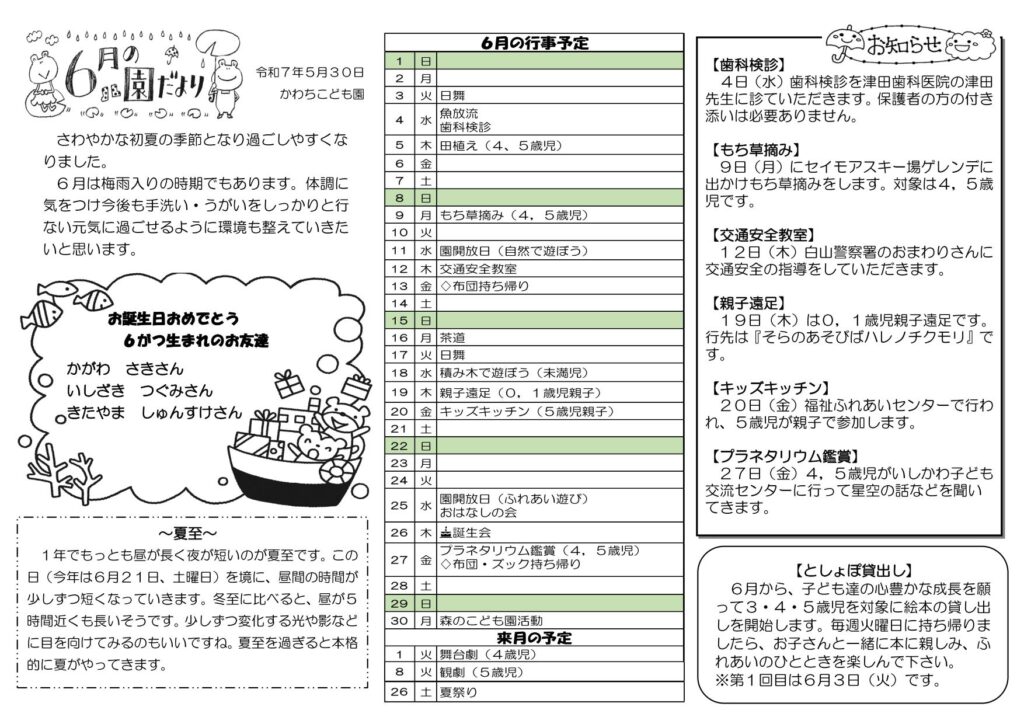 6月の
園だより
令和7年5月30日
かわちこども園
さわやかな初夏の季節となり過ごしやすくな
りました。
6月は梅雨入りの時期でもあります。体調に
気をつけ今後も手洗い・うがいをしっかりと行
ない元気に過ごせるように環境も整えていきた
いと思います。
お誕生日おめでとう
6がつ生まれのお友達
かがわ さきさん
いしざき つぐみさん
きたやま しゅんすけさん
～夏至～
1年でもっとも昼が長く夜が短いのが夏至です。この
日（今年は6月21日、土曜日）を境に、昼間の時間が
少しずつ短くなっていきます。冬至に比べると、昼が5
時間近くも長いそうです。少しずつ変化する光や影など
に目を向けてみるのもいいですね。夏至を過ぎると本格
的に夏がやってきます。
6月の行事予定
1 日
2 月
3 火 日舞
4 水 魚放流
歯科検診
5 木 田植え（4、5歳児）
6 金
7 土
8 日
9 月 もち草摘み（4，5歳児）
10 火
11 水 園開放日（自然で遊ぼう）
12 木 交通安全教室
13 金 ◇布団持ち帰り
14 土
15 日
16 月 茶道
17 火 日舞
18 水 積み木で遊ぼう（未満児）
19 木 親子遠足（0，1歳児親子）
20 金 キッズキッチン（5歳児親子）
21 土
22 日
23 月
24 火
25 水 園開放日（ふれあい遊び）
おはなしの会
26 木 誕生会
27 金 プラネタリウム鑑賞（4，5歳児）
◇布団・ズック持ち帰り
28 土
29 日
30 月 森のこども園活動
来月の予定
1 火 舞台劇（4歳児）
8 火 観劇（5歳児）
26 土 夏祭り
お知らせ
【歯科検診】
4日（水）歯科検診を津田歯科医院の津田
先生に診ていただきます。保護者の方の付き
添いは必要ありません。
【もち草摘み】
9日（月）にセイモアスキー場ゲレンデに
出かけもち草摘みをします。対象は4，5歳
児です。
【交通安全教室】
12日（木）白山警察署のおまわりさんに
交通安全の指導をしていただきます。
【親子遠足】
19日（木）は0，1歳児親子遠足です。
行先は『そらのあそびばハレノチクモリ』で
す。
【キッズキッチン】
20日（金）福祉ふれあいセンターで行わ
れ、5歳児が親子で参加します。
【プラネタリウム鑑賞】
27日（金）4，5歳児がいしかわ子ども
交流センターに行って星空の話などを聞い
てきます。
【としょぽ貸出し】
6月から、子ども達の心豊かな成長を願
って3・4・5歳児を対象に絵本の貸し出
しを開始します。毎週火曜日に持ち帰りま
したら、お子さんと一緒に本に親しみ、ふ
れあいのひとときを楽しんで下さい。
※第1回目は6月3日（火）です。